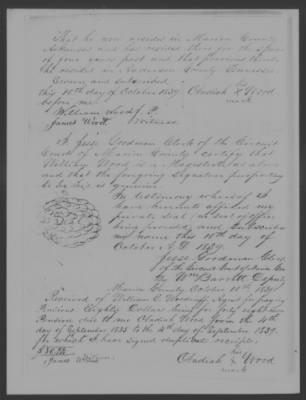 That he now resides in Marion County
Arkansas and has resided there for the space
of four years past and that previous thereto
he resided in Anderson County Tennessee
Sworn and subscribed
this 10th day of October 1839 Obadiah X Wood
before me mark
William Wood J. P.
James Wood Witness
I Jesse Goodman Clerk of the Circuit
Court of Marion County certify that
William Wood is a Magistrate as above
and that the foregoing Signature purporting
to be his is genuine
In testimony whereof I
have hereunto affixed my
private seal (no seal of office
being provided) and subscribed
my name this 10th day of
October A D 1839.
Jesse Goodman Clerk
of the Circuit Court of Marion Cou
by Wm Barrett Deputy
Marion County October 10th 1839
Received of William C. Woodruff Agent for paying
Pensions Eighty Dollars being for forty eight
Pension due to me Obadiah Wood from the 4th
day of September 1835 to the 4th day of September 1839.
for which I have signed duplicate receipts
$80.00 his
Witness Obadiah X Wood
James Wood mark